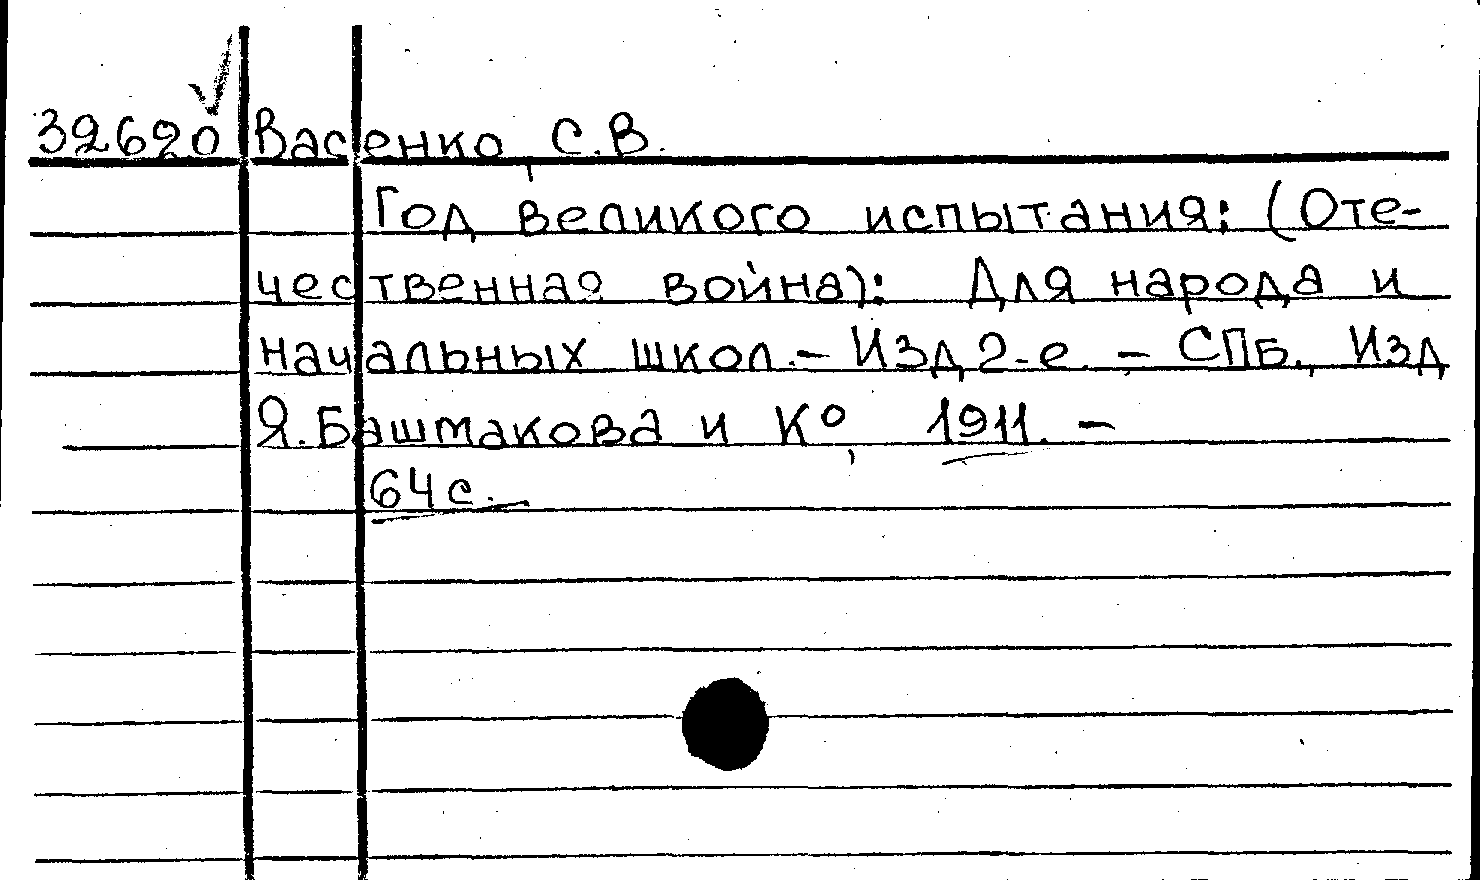 32620 Васенко, С.В.
Год великого испытания: (Оте-
чественная война): Для народа и
начальных школ.- Изд 2-е. - СПб., Изд
Я.Башмакова и К°, 1911. -
64с.